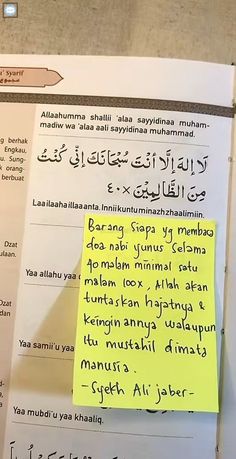 Syarif
Allaahumma shallii 'alaa sayyidinaa muham-
madiw wa 'alaa aali sayyidinaa muhammad.
g berhak
Engkau,
u. Sung-
orang
berbuat
لَا إِلٰهَ إِلَّا أَنْتَ سُبْحَانَكَ إِنِّي كُنْتُ
مِنَ الظَّالِمِيْنَ ×٤٠
Laa ilaaha illaa anta. Innii kuntu minazh zhaalimiin.
Barang siapa yg membaca
doa nabi yunus selama
40 malam minimal satu
malam 100x, Allah akan
tuntaskan hajatnya &
keinginannya walaupun
Itu mustahil dimata
manusia.
-Syekh Ali jaber-
Dzat
ulaan.
Yaa allahu yaa
Dzat
Yaa samii'u yaa
Yaa mubdi'u yaa khaaliq.